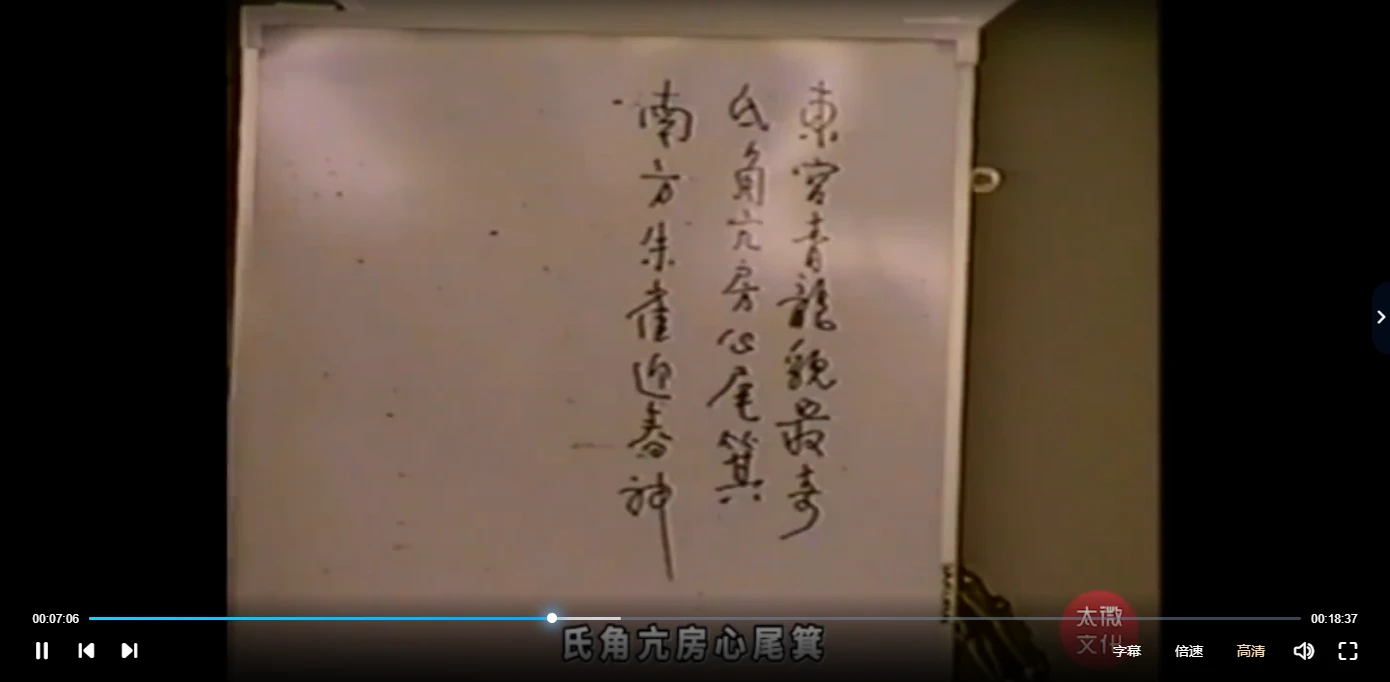 東宮青龍貌最奇
氐角亢房心尾箕
南方朱雀迎春神
氐角亢房心尾箕
太微
文化
00:07:06
00:18:37
字幕
倍速
高清